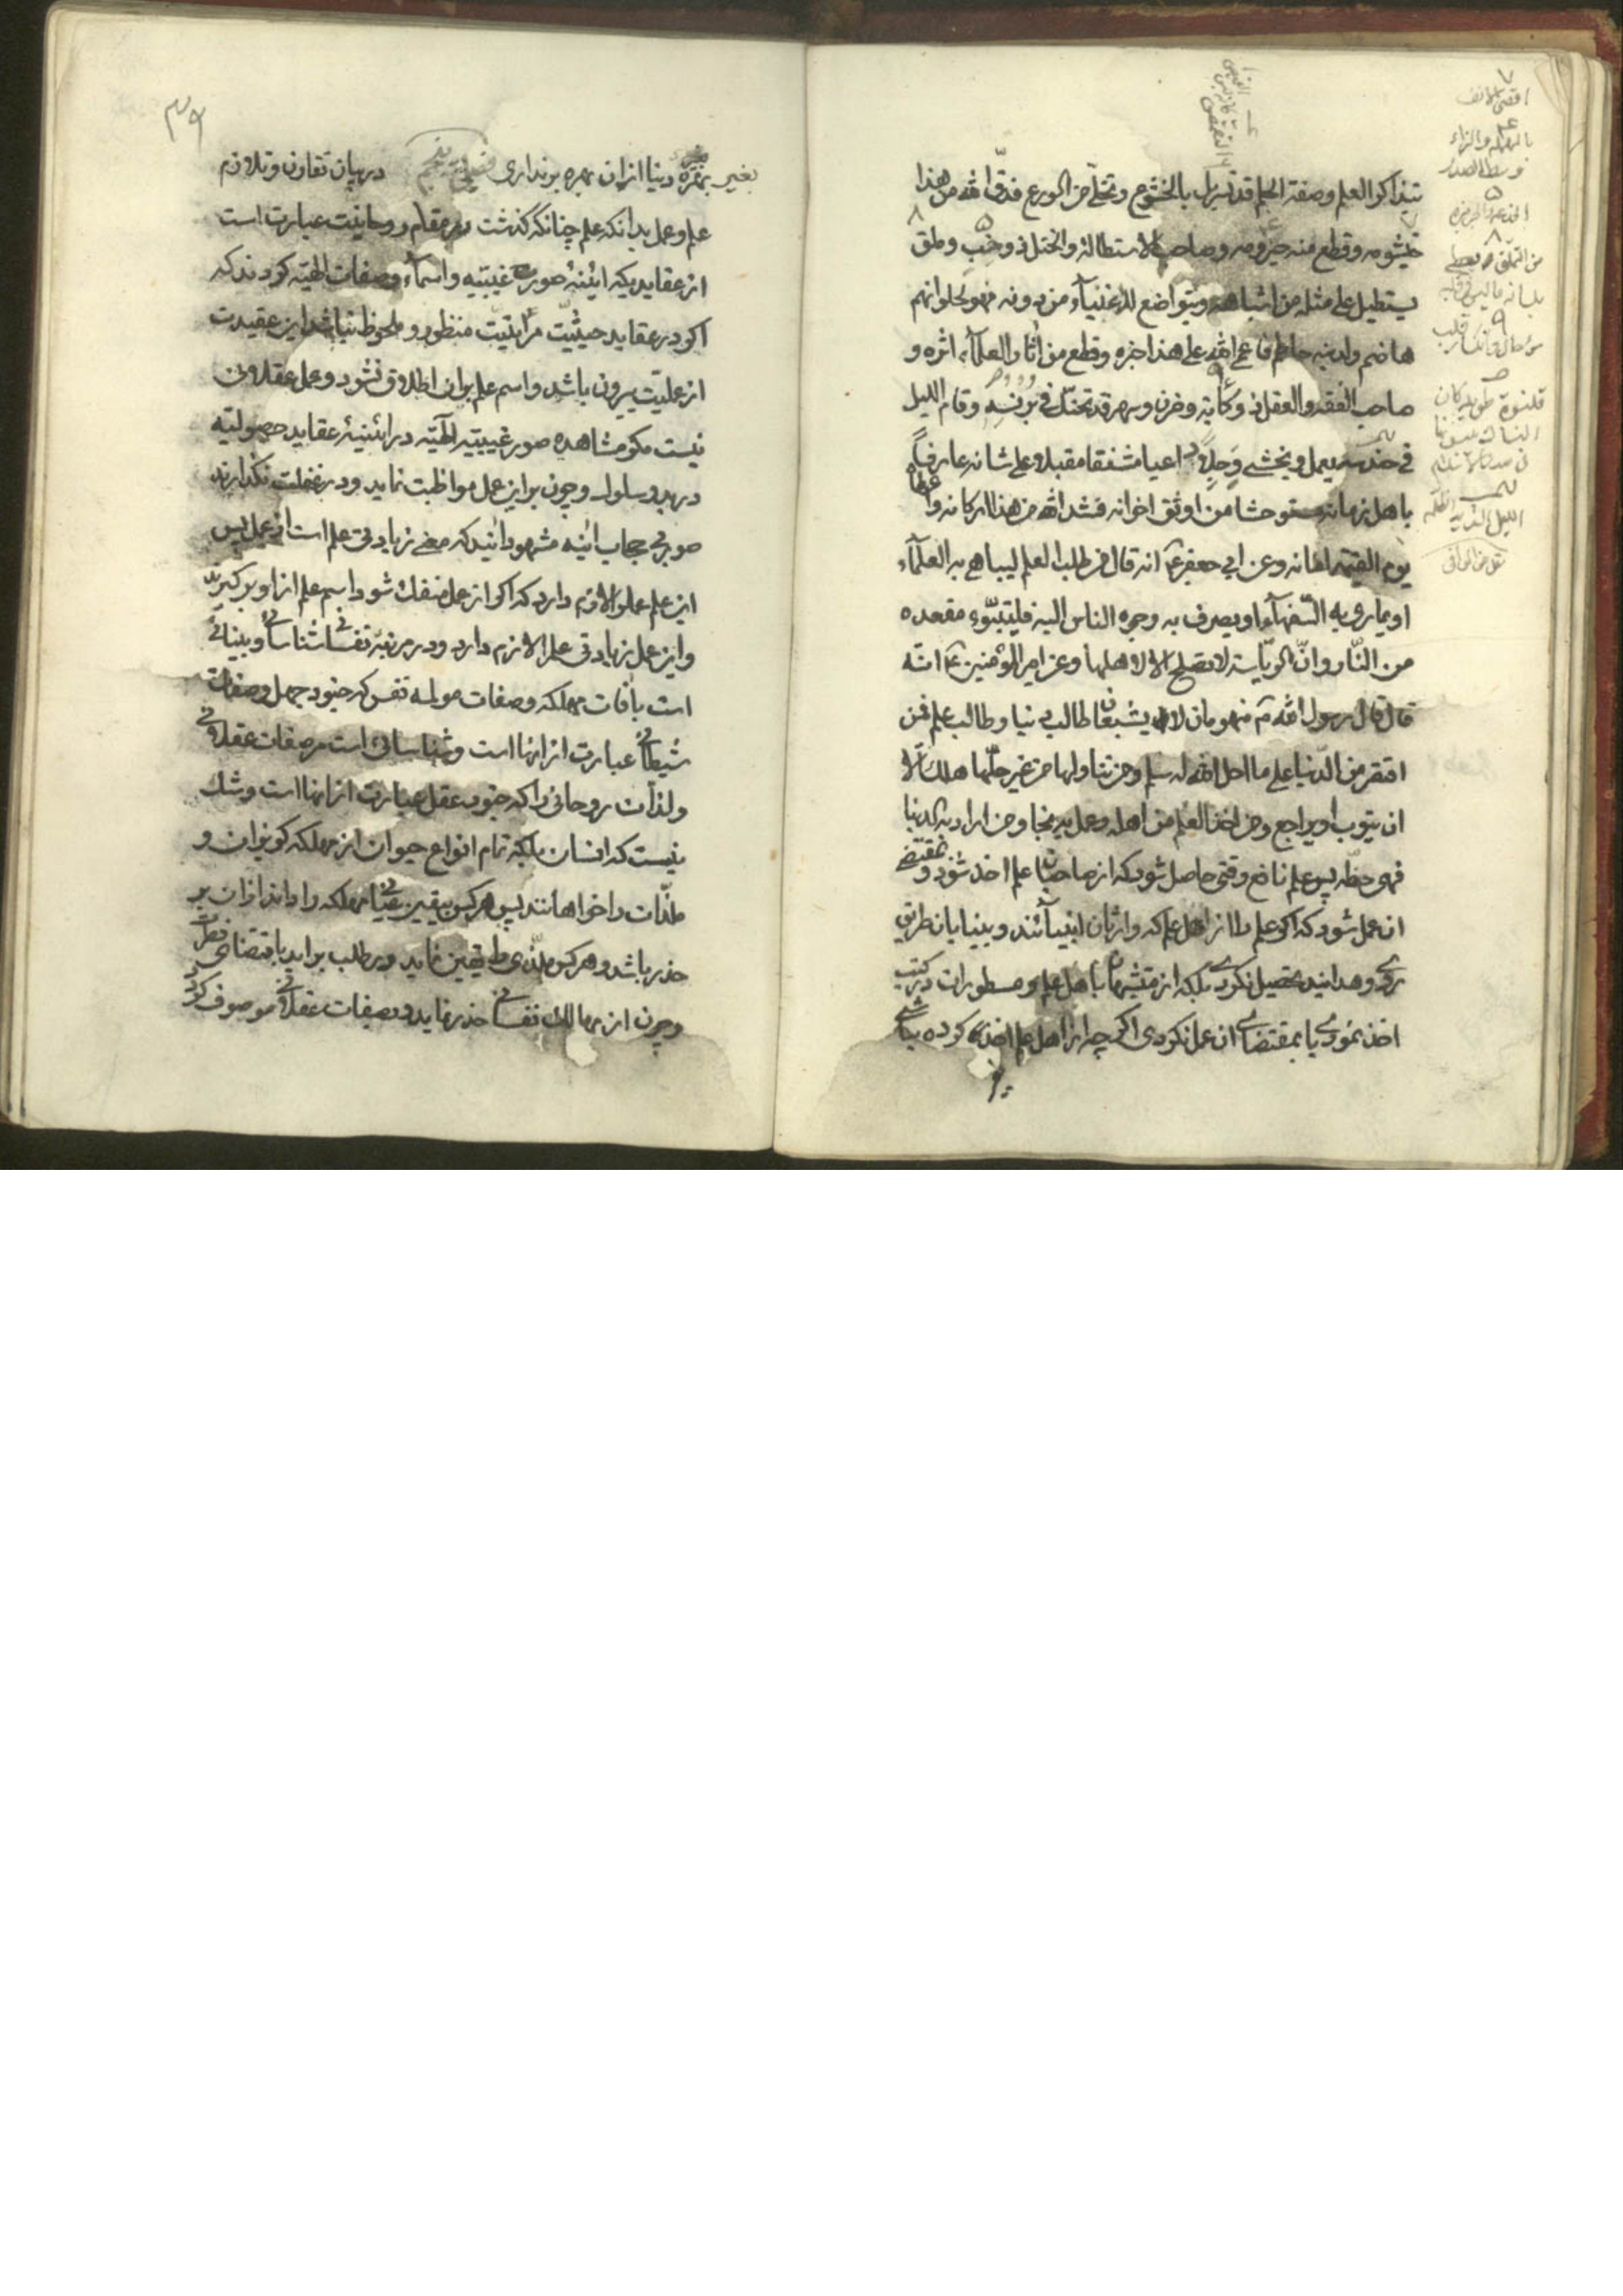 بتذاكر العلم وصفة الحلم قد تسربل بالخشوع وتخلّى من الورع فدقّ الله من هذا
خيشومه وقطع منه حيزومه وصاحب الاستطالة والختل ذو خبّ وملق
يستطيل على مثله من اشباهه ويتواضع للاغنياء من دونه فهو لحلوائهم
هاضم ولدينه حاطم فاعمى الله على هذا خبره وقطع من اثار العلمآء اثره و
صاحب الفقه والعقل ذو كآبة وحزن وسهر قد تحنّك في برنسه وقام الليل
في حندسه يعمل ويخشى وجلاً داعيا مشفقا مقبلا على شانه عارفاً
باهل زمانه مستوحشا من اوثق اخوانه فشد الله من هذا اركانه واعطاه
يوم القيمة امانه وعن ابي جعفر ع انه قال من طلب العلم ليباهي به العلمآء
او يماري به السّفهآء او يصرف به وجوه الناس اليه فليتبوّء مقعده
من النّار وانّ الريّاسة لا تصلح الا لاهلها وعن امير المؤمنين ع انه
قال قال رسول الله ص منهومان لا يشبعان طالب دنيا وطالب علم فمن
اقتصر من الدّنيا على ما احل الله له سلم ومن تناولها من غير حلّها هلك الّا
ان يتوب او يراجع ومن اخذ العلم من اهله وعمل به نجا ومن اراد به الدنيا
فهي حظّه پس علم نافع وقتى حاصل شود كه از صاحبان علم اخذ شود و بمقتضى
ان عمل شود كه اكر علم را از اهل علم كه وارثان انبيآئند وبينايان طريق
روى وهدايتند تحصيل نكردى بلكه از متشبّهان باهل علم ومسطورات در كتب
اخذ نمودى يا بمقتضاى ان عمل نكردى اكر چه از اهل علم اخذ كرده باشى
بغير
اقصى الانف
بالمهملة والزاء
وسط الصدر
قلنسوة طويلة كان
النساك يلبسونها
في صدر الاسلام
الليل الشديد الظلمة
نقل من الوافى
۳۹
بغير بهرهٔ دنيا از ان بهره بر ندارى فصل پنجم در بيان تعاون وتلازم
علم وعمل بدانكه علم چنانكه گذشت در مقام روحانيت عبارت است
از عقايديكه ائينهٔ صور غيبيّه واسماء وصفات الهيّه كردند كه
اكر در عقايد حيثيّت مرآتيّت منظور و ملحوظ نباشد اين عقيدت
از علميّت بيرون باشد واسم علم بران اطلاق نشود وعمل عقلانى
نيست مكر مشاهده صور غيبيّه الهيّه در ائينهٔ عقايد حصوليّه
در بدو سلوك وچون براين عمل مواظبت نمايد ودر غفلت نكذارند
صور بى حجاب ائينه مشهود ائيد كه معنى زيادتى علم است از عمل پس
اين علم عمل را لازم دارد كه اكر از عمل منفك شود اسم علم از او بركيرند
واين عمل زيادتى علم را لازم دارد ودر مرتبهٔ نفسانى شناسائى وبينائى
است بآفات مهلكه وصفات مولمه نفس كه جنود جهل وصفات
شيطانى عبارت از انها است وشناسائى است بر صفات عقلانى
ولذّات روحانى را كه جنود عقل عبارت از انها است وشك
نيست كه انسان بلكه تمام انواع حيوان از مهلكه كريزان و
ملذّات را خواهانند پس هر كس بيقين نفسانى مهلكه را داند از ان بر
حذر باشد وهر كس ملذّى را يقين نمايد در طلب برايد باقتضاى فطرت
وچون از مهالك نفسانى حذر نمايد وبصفات عقلانى موصوف كردد